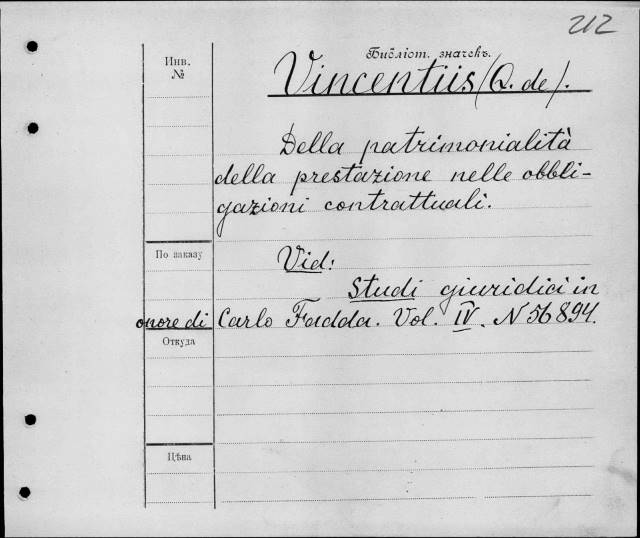 212
Библіот. значекъ.
Инв.
№
Vincentiis (Q. de).
Della patrimonialità
della prestazione nelle obbli-
gazioni contrattuali.
По заказу
Vid:
Studi giuridici in
onore di Carlo Fadda. Vol. IV. N 56894.
Откуда
Цѣна